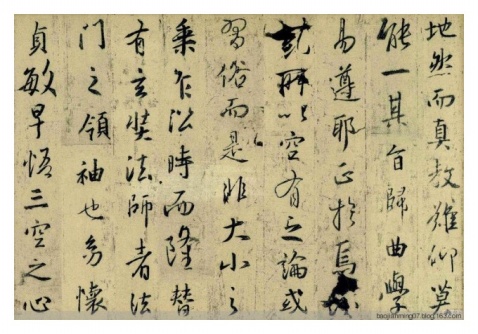 地然而真教難仰莫
能一其旨歸曲學
易遵耶正於焉
糺所以空有之論或
習俗而是非大小之
乘乍沿時而隆替
有玄奘法師者法
門之領袖也幼懷
貞敏早悟三空之心